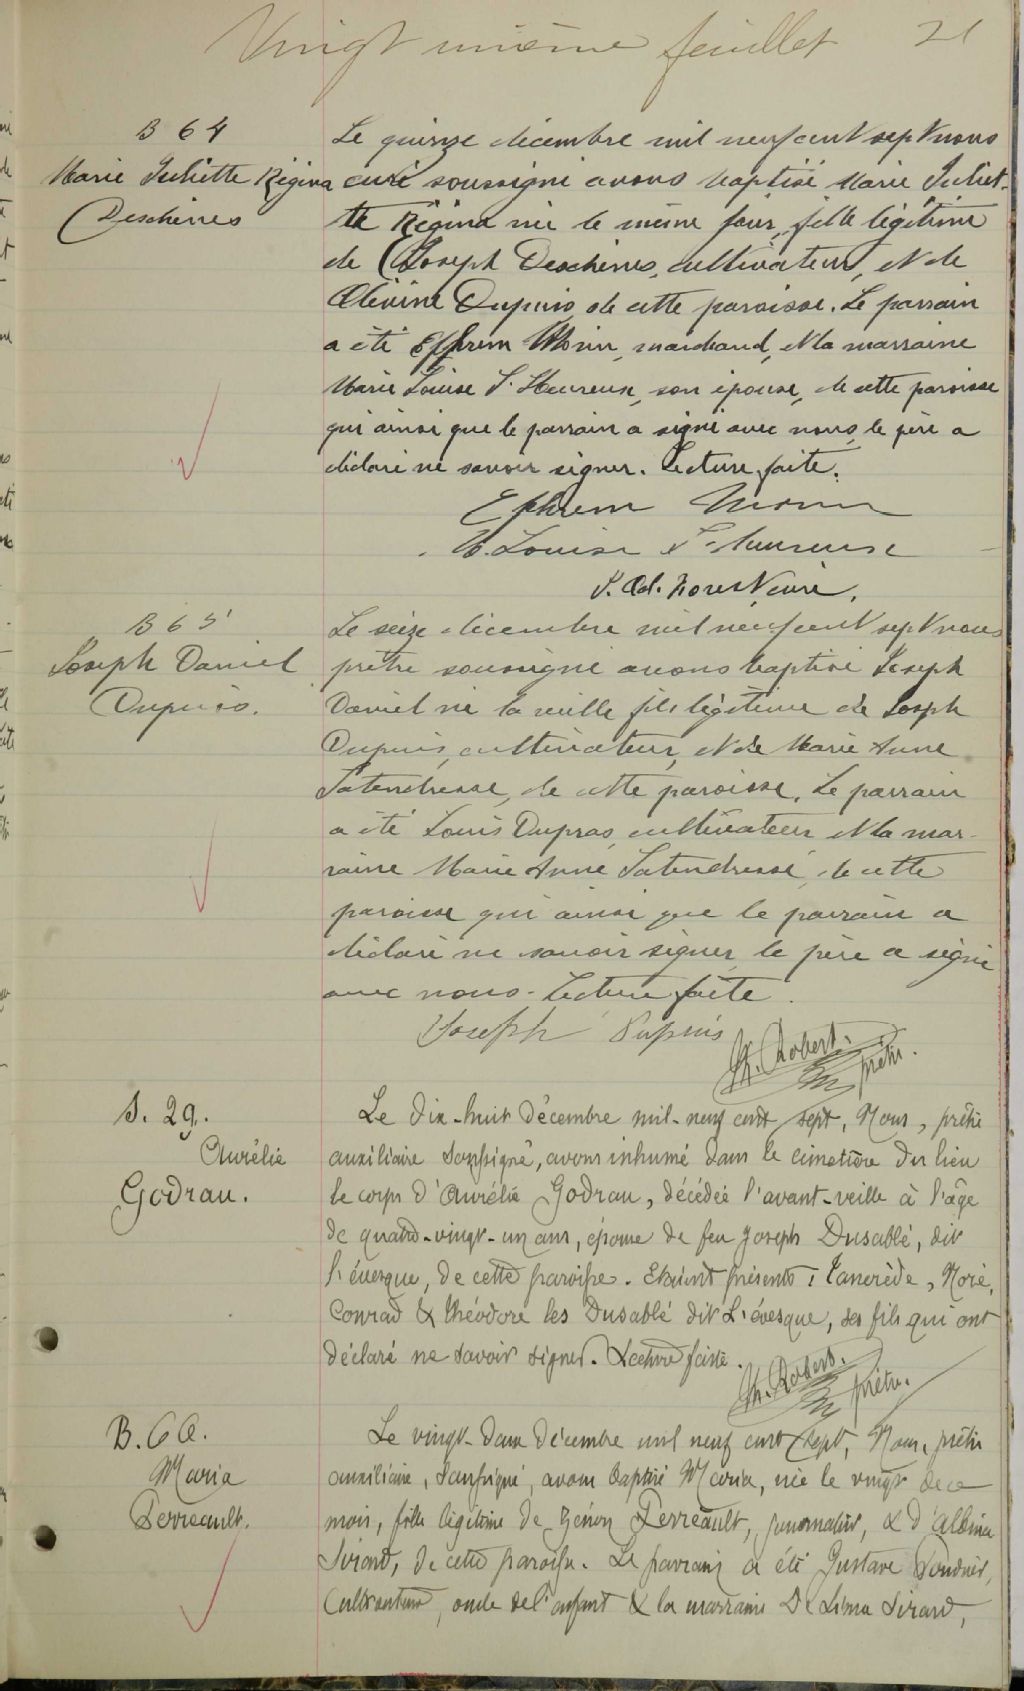 Vingt unième feuillet 21
B 64
Marie Juliette Régina
Deschênes
Le quinze décembre mil neuf cent sept nous
curé soussigné avons baptisé Marie Juliet-
te Régina née le même jour, fille légitime
de Joseph Deschênes, cultivateur, et de
Olévine Dupuis, de cette paroisse. Le parrain
a été Ephrem Morin, marchand, et la marraine
Marie Louise L'Heureux, son épouse, de cette paroisse
qui ainsi que le parrain a signé avec nous, le père a
déclaré ne savoir signer. Lecture faite.
Ephrem Morin
M. Louise L'Heureux
curé.
B 65
Joseph Daniel
Dupuis.
Le seize décembre mil neuf cent sept nous
prêtre soussigné avons baptisé Joseph
Daniel né la veille fils légitime de Joseph
Dupuis, cultivateur, et de Marie Anne
Latendresse, de cette paroisse. Le parrain
a été Louis Dupras, cultivateur et la mar-
raine Marie Anne Latendresse, de cette
paroisse qui ainsi que le parrain a
déclaré ne savoir signer, le père a signé
avec nous. Lecture faite.
Joseph Dupuis
Robert, prêtre.
S. 29.
Aurélie
Godrau.
Le dix-huit décembre mil-neuf cent sept, Nous, prêtre
auxiliaire soussigné, avons inhumé dans le cimetière du lieu
le corps d'Aurélie Godrau, décédée l'avant-veille à l'âge
de quatre-vingt-un ans, épouse de feu Joseph Dusablé, dit
L'évesque, de cette paroisse. Etaient présents: Tancrède,
Conrad & Théodore les Dusablé dit L'évesque, ses fils qui ont
déclaré ne savoir signer. Lecture faite.
Robert, prêtre.
B. 66.
Maria
Perreault.
Le vingt-deux décembre mil neuf cent sept, Nous, prêtre
auxiliaire, soussigné, avons baptisé Maria, née le vingt de ce
mois, fille légitime de Zénon Perreault, journalier, & d'Albina
Sirard, de cette paroisse. Le parrain a été Gustave
Cultivateur, oncle de l'enfant & la marraine Délima Sirard,